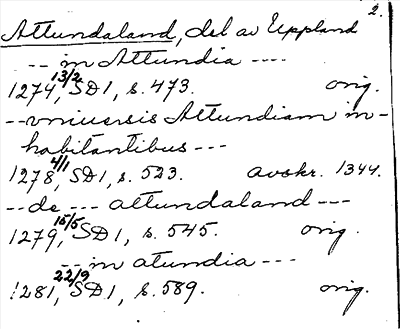 2.
Attundaland, del av Uppland
-- in Attundia ----
1274 13/2, SD 1, s. 473. orig.
-- vniuersis Attundiam in-
habitantibus ---
1278 4/1, SD 1, s. 523. avskr. 1344.
-- de --- attundaland ---
1279 15/5, SD 1, s. 545. orig.
-- in atundia ---
1281 22/9, SD 1, s. 589. orig.